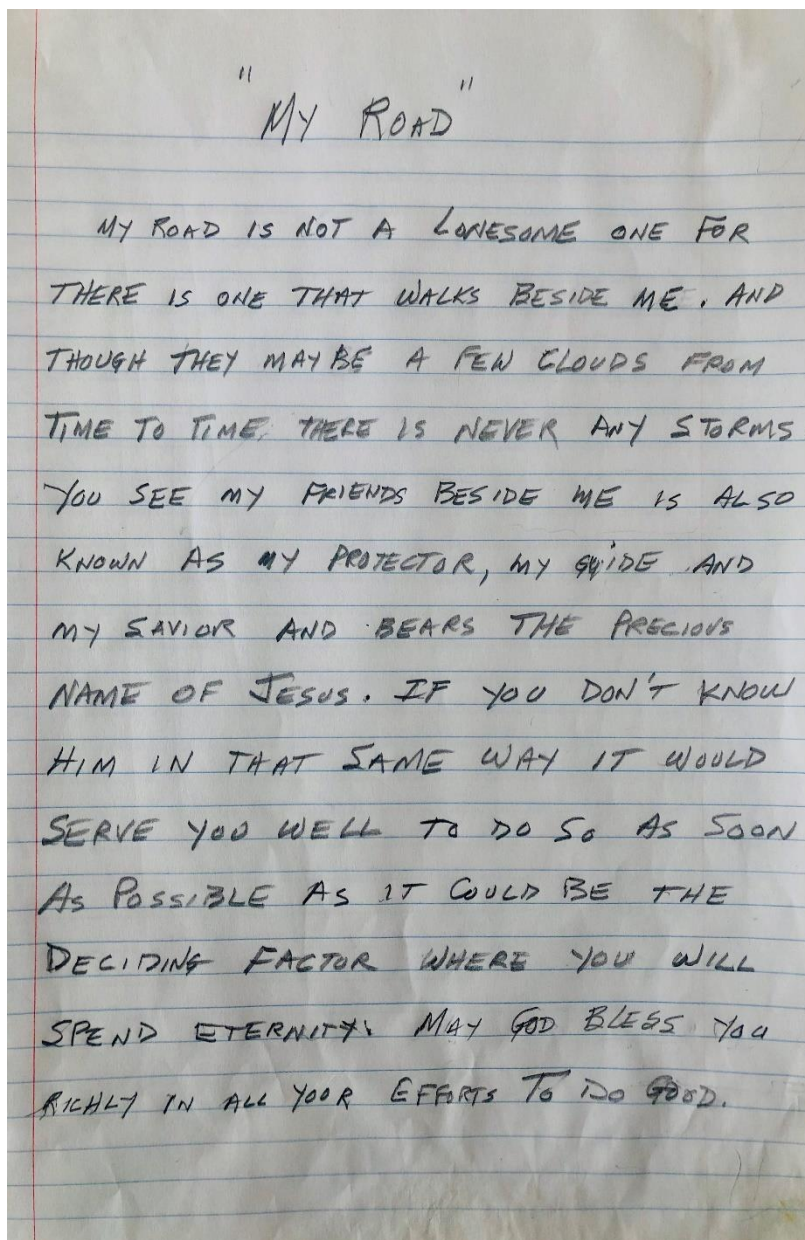 "MY ROAD"
MY ROAD IS NOT A LONESOME ONE FOR
THERE IS ONE THAT WALKS BESIDE ME. AND
THOUGH THEY MAYBE A FEW CLOUDS FROM
TIME TO TIME, THERE IS NEVER ANY STORMS
YOU SEE MY FRIENDS BESIDE ME IS ALSO
KNOWN AS MY PROTECTOR, MY GUIDE AND
MY SAVIOR AND BEARS THE PRECIOUS
NAME OF JESUS. IF YOU DON'T KNOW
HIM IN THAT SAME WAY IT WOULD
SERVE YOU WELL TO DO SO AS SOON
AS POSSIBLE AS IT COULD BE THE
DECIDING FACTOR WHERE YOU WILL
SPEND ETERNITY. MAY GOD BLESS YOU
RICHLY IN ALL YOUR EFFORTS TO DO GOOD.